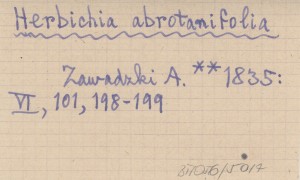 Herbichia abrotanifolia
Zawadzki A. ** 1835:
VI, 101, 198-199